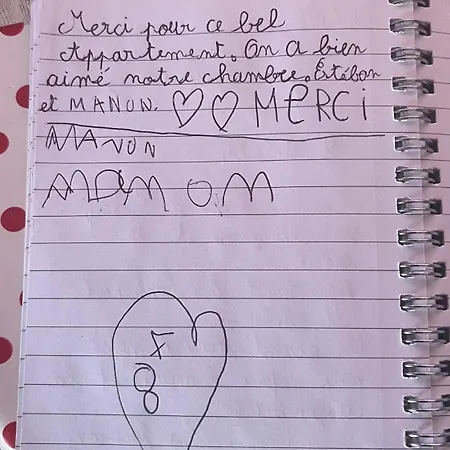 Merci pour ce bel
Appartement. On a bien
aimé notre chambre. Estéban
et MANON. ♡♡ MERCi
MANON